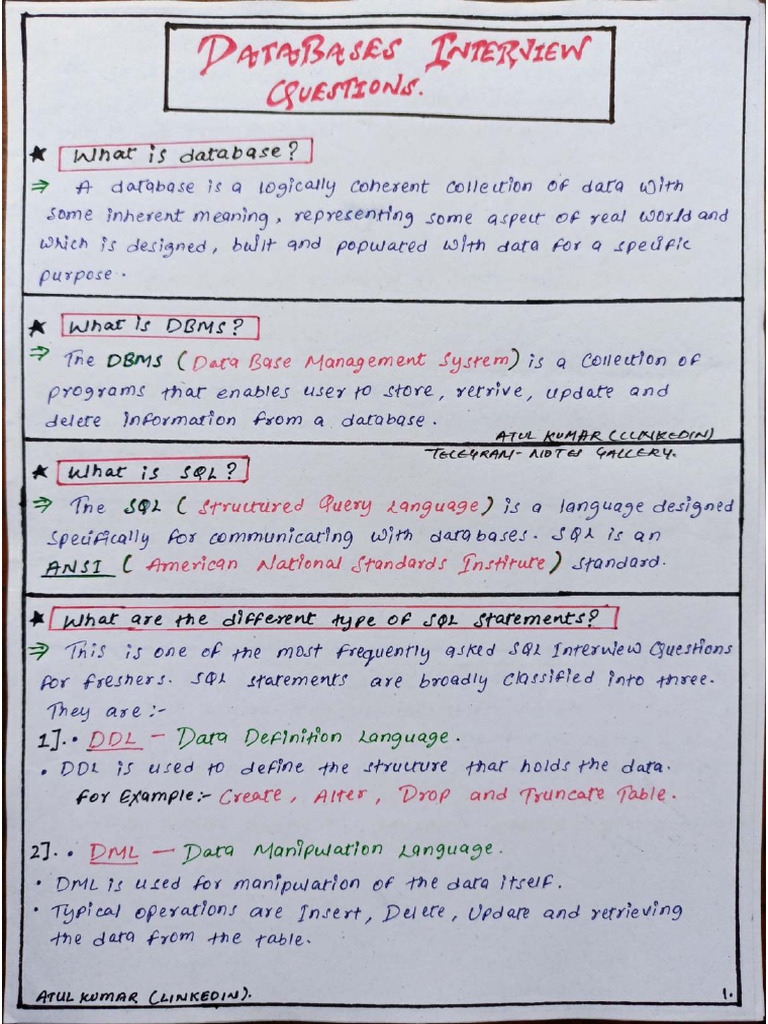 DATABASES INTERVIEW
QUESTIONS.
★ What is database?
⇒ A database is a logically coherent collection of data with
some inherent meaning, representing some aspect of real world and
which is designed, built and populated with data for a specific
purpose.
★ What is DBMS?
⇒ The DBMS (Data Base Management System) is a collection of
programs that enables user to store, retrive, update and
delete information from a database.
ATUL KUMAR (LINKEDIN)
TELEGRAM- NOTES GALLERY.
★ What is SQL?
⇒ The SQL (Structured Query Language) is a language designed
specifically for communicating with databases. SQL is an
ANSI (American National Standards Institute) standard.
★ What are the different type of SQL statements?
⇒ This is one of the most frequently asked SQL Interview Questions
for freshers. SQL statements are broadly classified into three.
They are :-
1]. • DDL – Data Definition Language.
• DDL is used to define the structure that holds the data.
For Example:- Create, Alter, Drop and Truncate Table.
2]. • DML – Data Manipulation Language.
• DML is used for manipulation of the data itself.
• Typical operations are Insert, Delete, Update and retrieving
the data from the table.
ATUL KUMAR (LINKEDIN).
1.